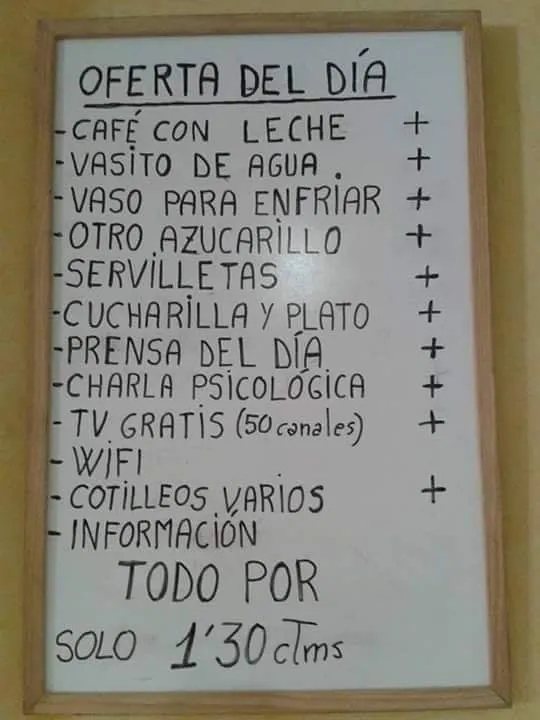 OFERTA DEL DÍA
-CAFÉ CON LECHE +
-VASITO DE AGUA. +
-VASO PARA ENFRIAR +
-OTRO AZUCARILLO +
-SERVILLETAS +
-CUCHARILLA Y PLATO +
-PRENSA DEL DÍA +
-CHARLA PSICOLÓGICA +
-TV GRATIS (50 canales) +
-WIFI
-COTILLEOS VARIOS +
-INFORMACIÓN
TODO POR
SOLO 1'30 cTms